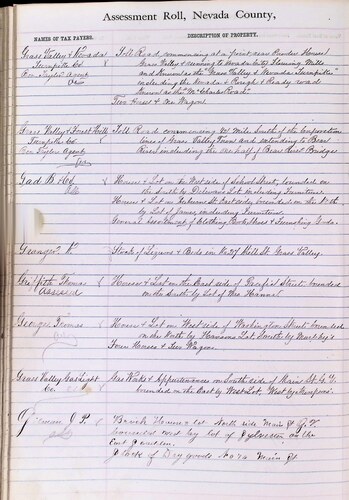 Assessment Roll, Nevada County,
NAMES OF TAX PAYERS.
DESCRIPTION OF PROPERTY.
Grass Valley & Nevada Toll Road commencing at a point near Powder House
Turnpike Co Grass Valley & running to Nevada City Flouring Mills
Agent and Known as the "Grass Valley & Nevada Turnpike"
including the Nevada & Rough & Ready road
Known as the "McClark Road"
Two Horses & one Wagon
Grass Valley & Forest Hill Toll Road commencing ¼ Mile South of the Corporation
Turnpike Co line of Grass Valley Town and extending to Bear
Agent River including the one half of Bear River Bridge
Gad B & Co House & Lot on the West side of School Street, bounded on
the South by including Furniture
House & Lot on Auburn St East side bounded on the North
by Lot of Jones including Furniture
General assortment of Clothing, Boots & Shoes & Furnishing Goods
Granger W. Stock of Liquors & Beds in No 27 Mill St Grass Valley
Griffith Thomas House & Lot on the East side of Street bounded
Assessed on the South by Lot of Hannah
George Thomas House & Lot on West side of Washington Street bounded
on the North by Lot, South by Murphy's
Four Horses & Two Wagons
Grass Valley Gas Light Gas Works & Appurtenances on South side of Main St G.V.
Co bounded on the East by West Lot, West by
J P. Brick House & lot North side Main St G.V.
bounded West by lot of Sylvester on the
East
Stock of Dry goods No 70 Main St